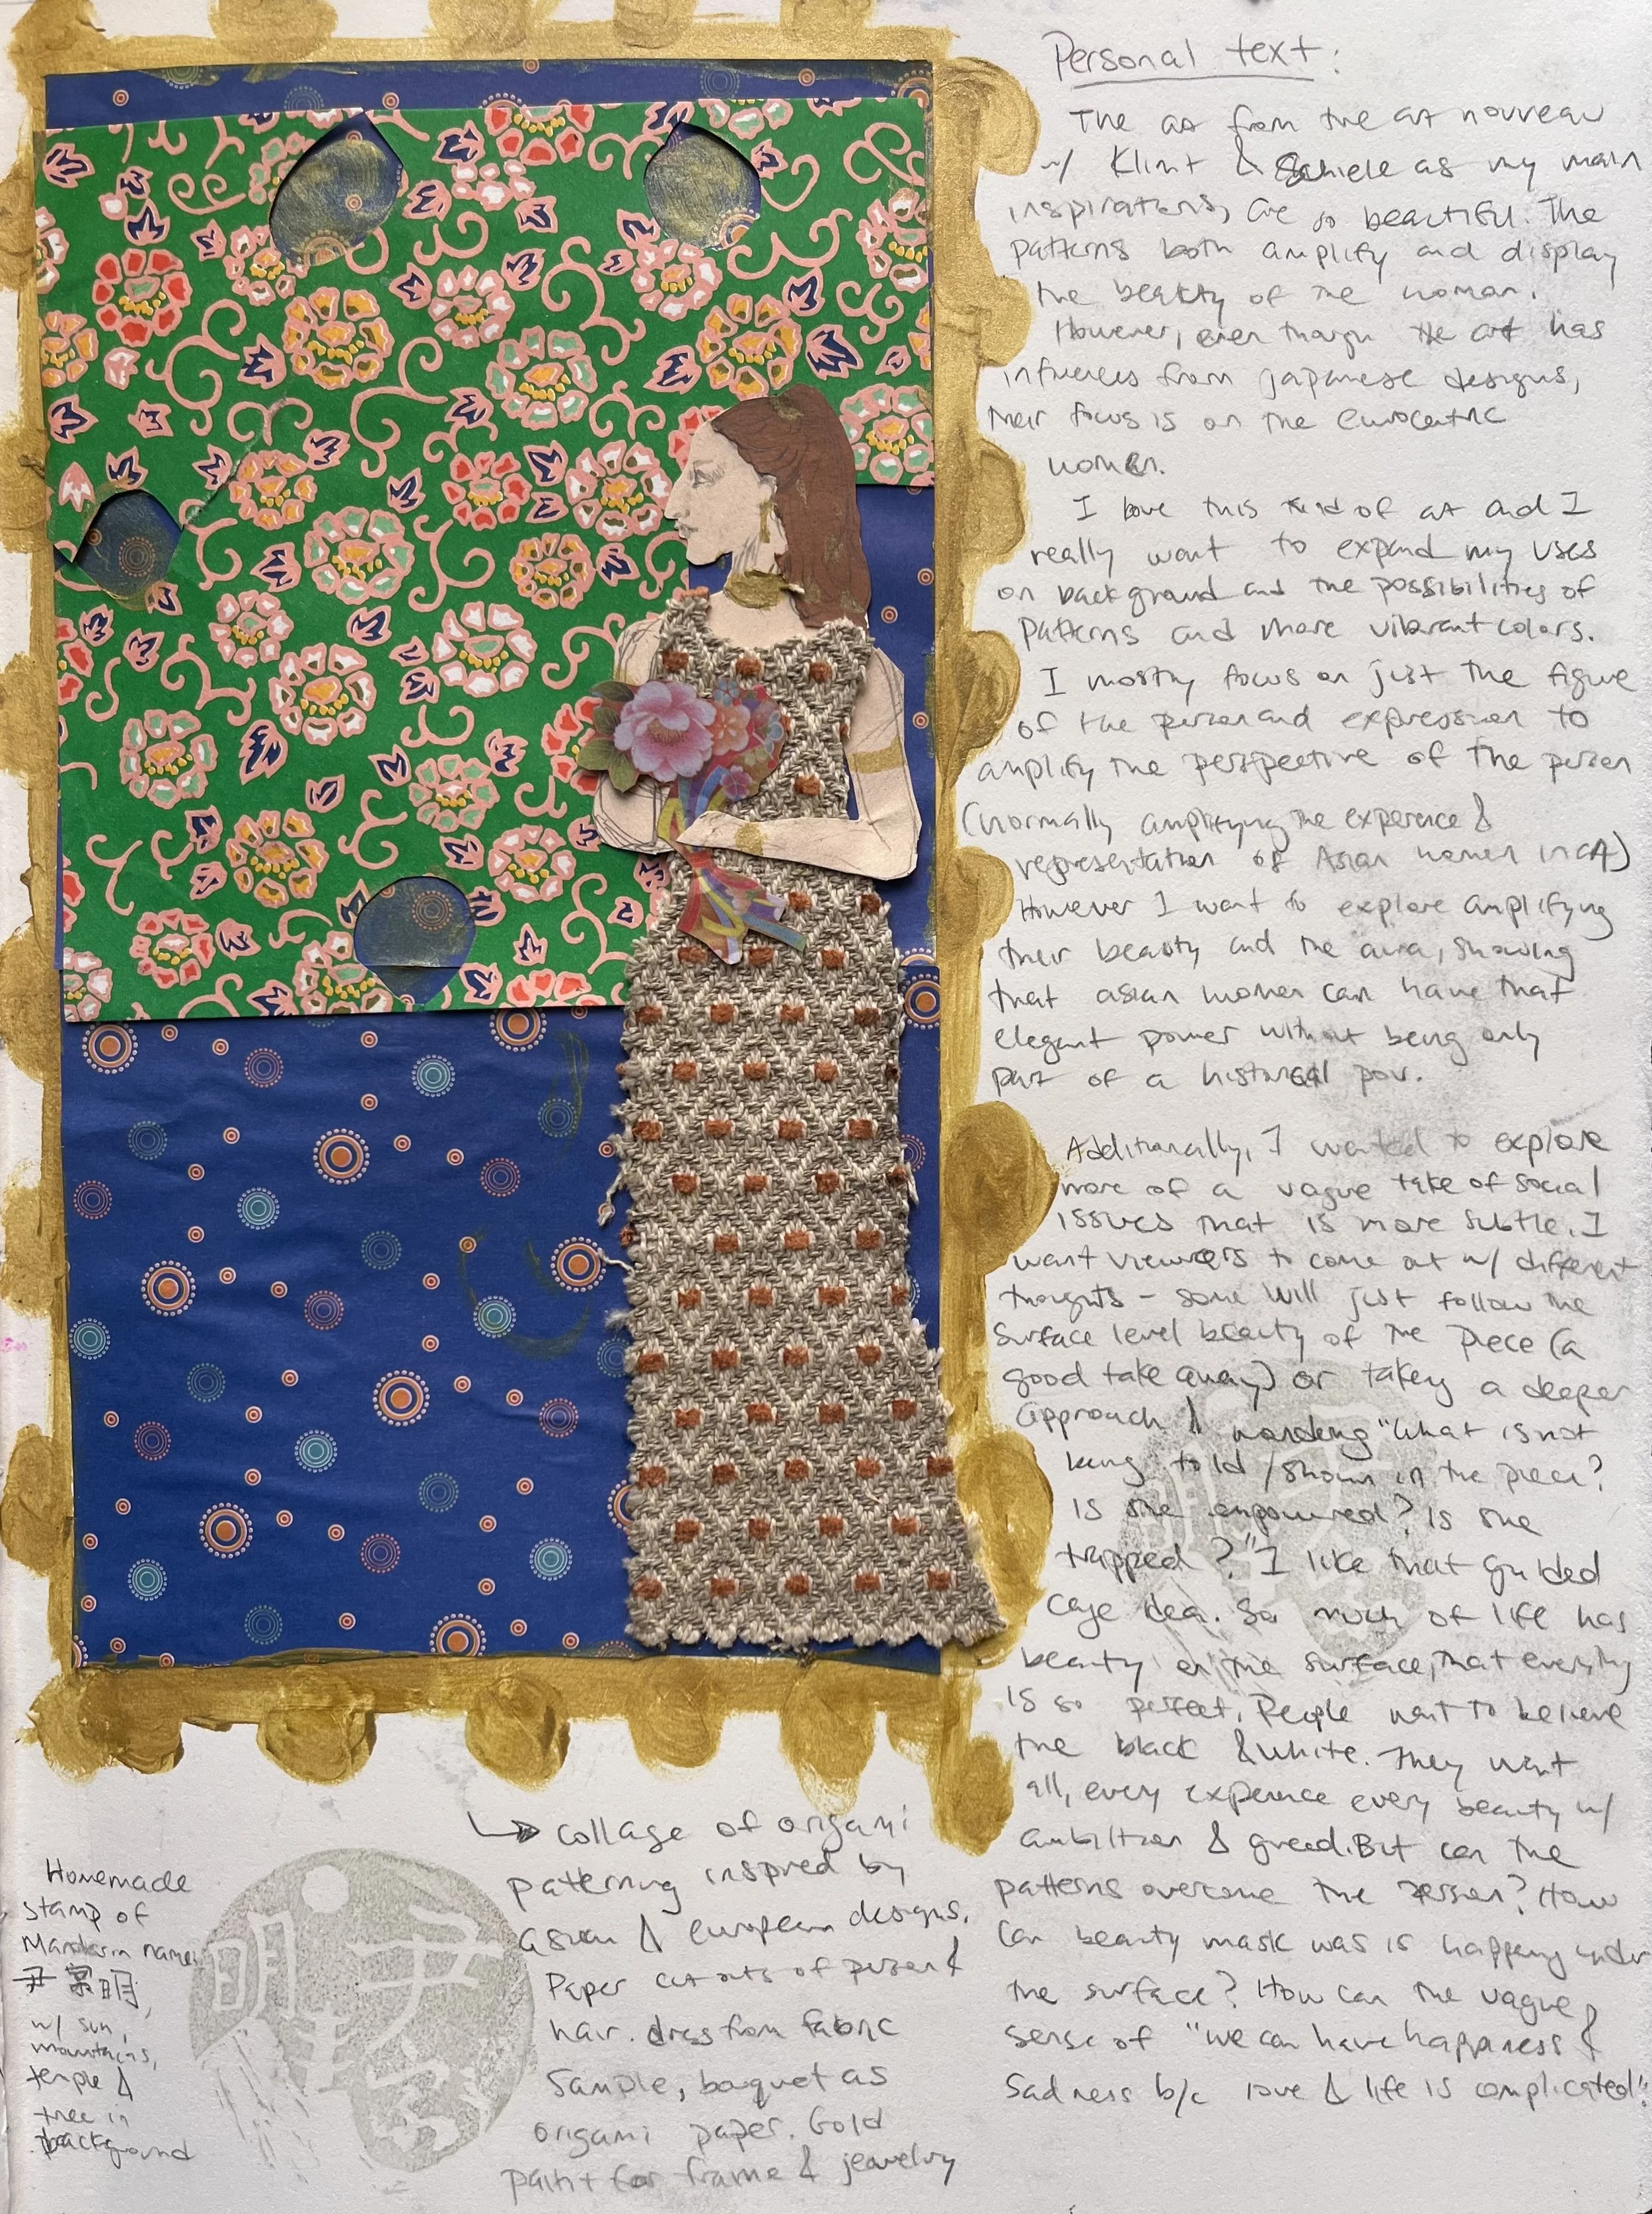 Personal text:
The art from the art nouveau
w/ Klimt & Schiele as my main
inspirations, are so beautiful. The
patterns both amplify and display
the beauty of the woman.
However, even though the art has
influences from japanese designs,
their focus is on the eurocentric
women.
I love this kind of art and I
really want to expand my uses
on background and the possibilities of
patterns and more vibrant colors.
I mostly focus on just the figure
of the person and expression to
amplify the perspective of the person
(normally amplifying the experence &
representation of Asian women in CA)
However I want to explore amplifying
their beauty and the aura, showing
that asian women can have that
elegant power without being only
part of a historical pov.
Additionally, I wanted to explore
more of a vague take of social
issues that is more subtle. I
want viewers to come out w/ different
thoughts - some will just follow the
surface level beauty of the piece (a
good take away) or taking a deeper
approach & wondering "What is not
being told / shown in the piece?
Is she empowered? Is she
trapped?" I like that guilded
cage idea. So much of life has
beauty on the surface, that everything
is so perfect. People want to believe
the black & white. They want
all, every experence every beauty w/
ambition & greed. But can the
patterns overcome the person? How
can beauty mask was is happening under
the surface? How can the vague
sense of "we can have happiness &
sadness b/c love & life is complicated".
↳ collage of origami
patterning inspired by
asian & european designs.
Paper cut outs of person &
hair. dress from fabric
sample, boquet as
origami paper. Gold
paint for frame & jewelry
Homemade
stamp of
Mandarin name
明,
w/ sun,
mountains,
temple &
tree in
background
明